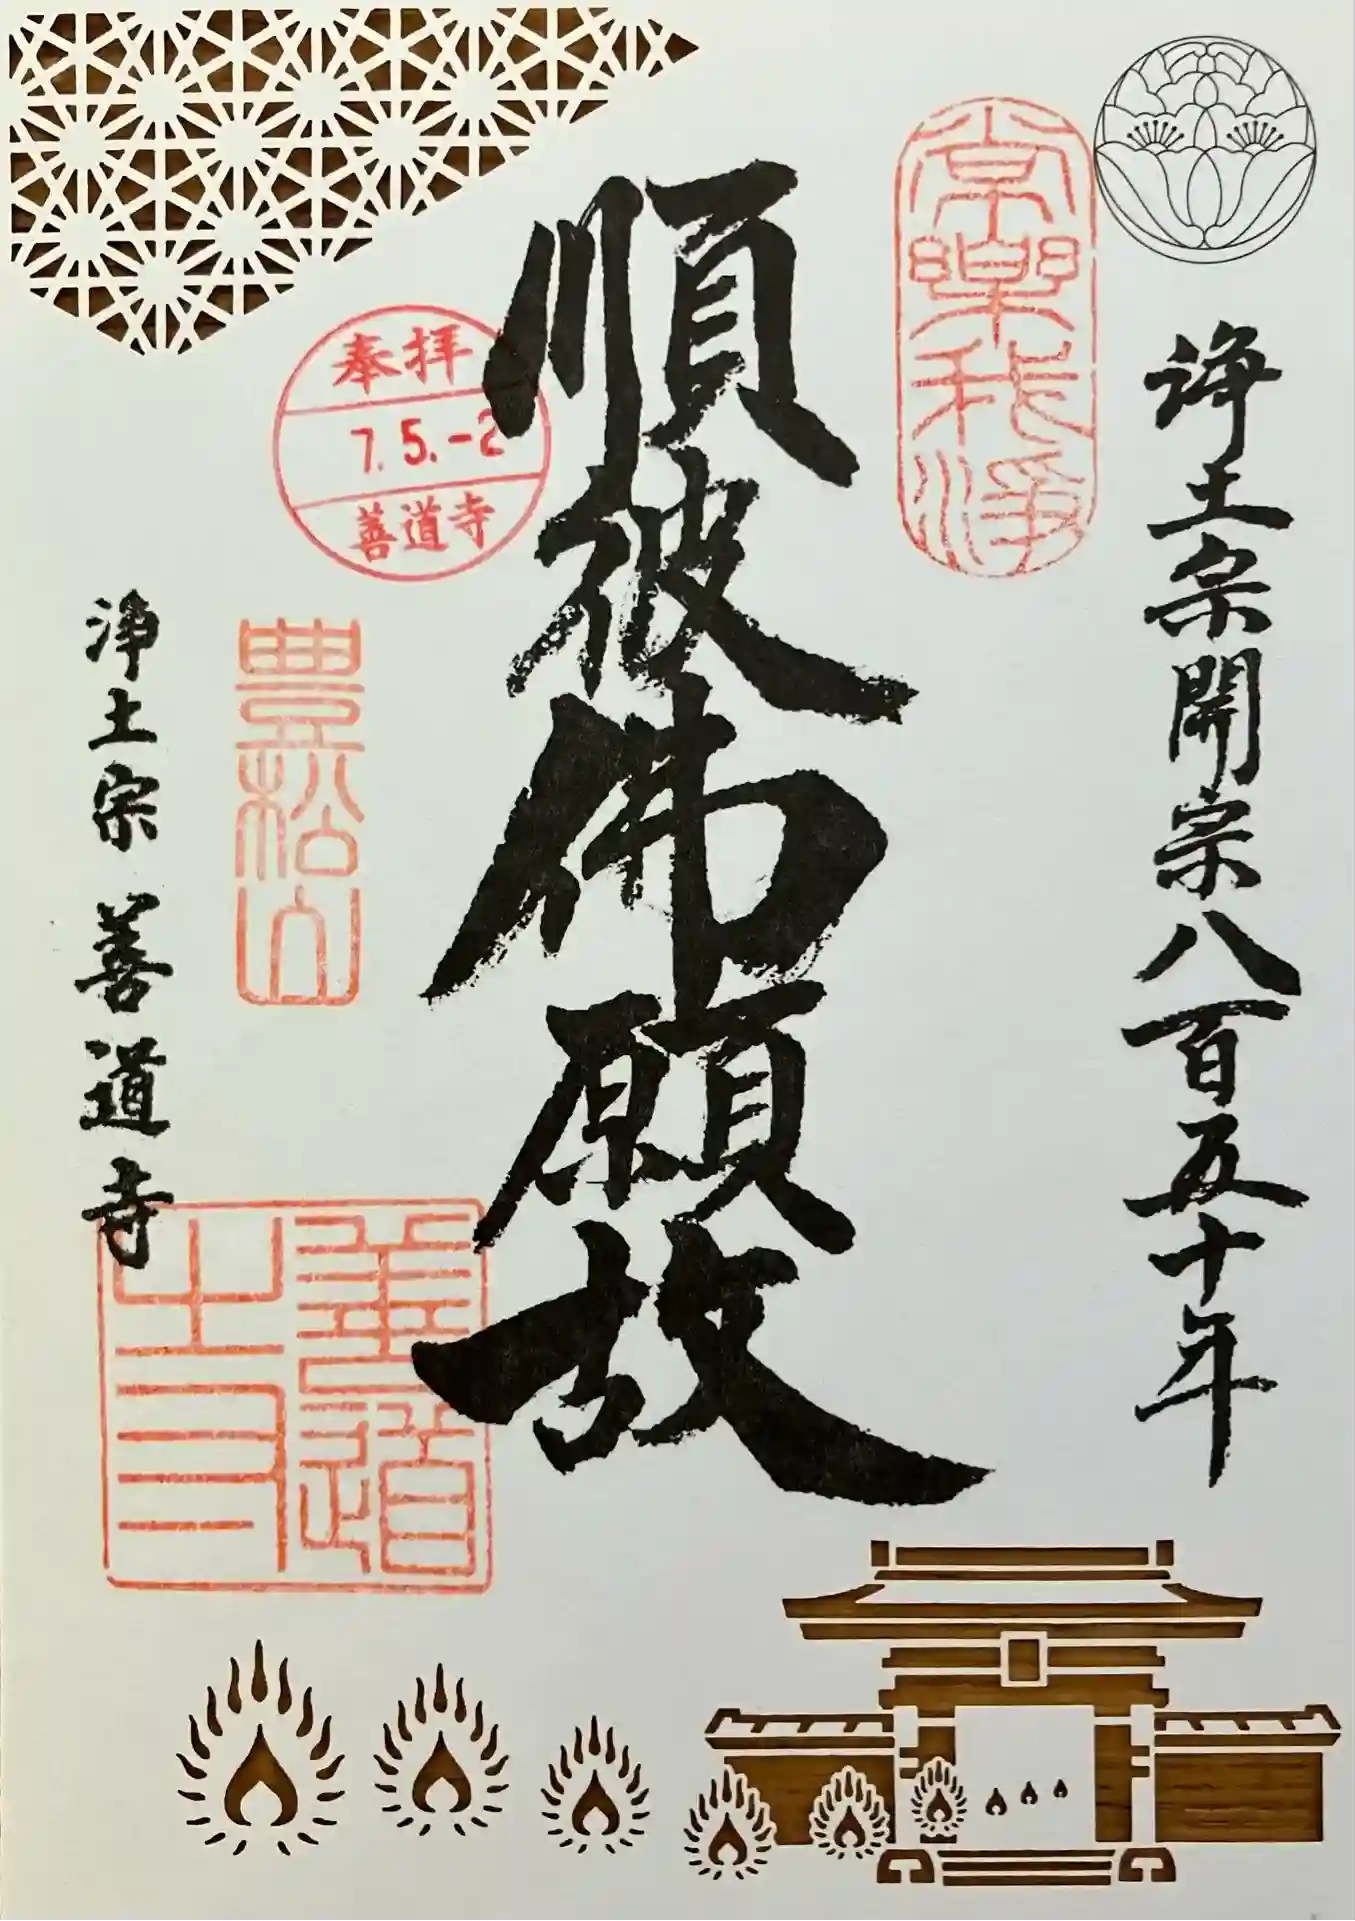 浄土宗開宗八百五十年
常樂我浄
順彼佛願故
奉拝
7.5.-2
善道寺
豊松山
善道
寺印
浄土宗 善道寺